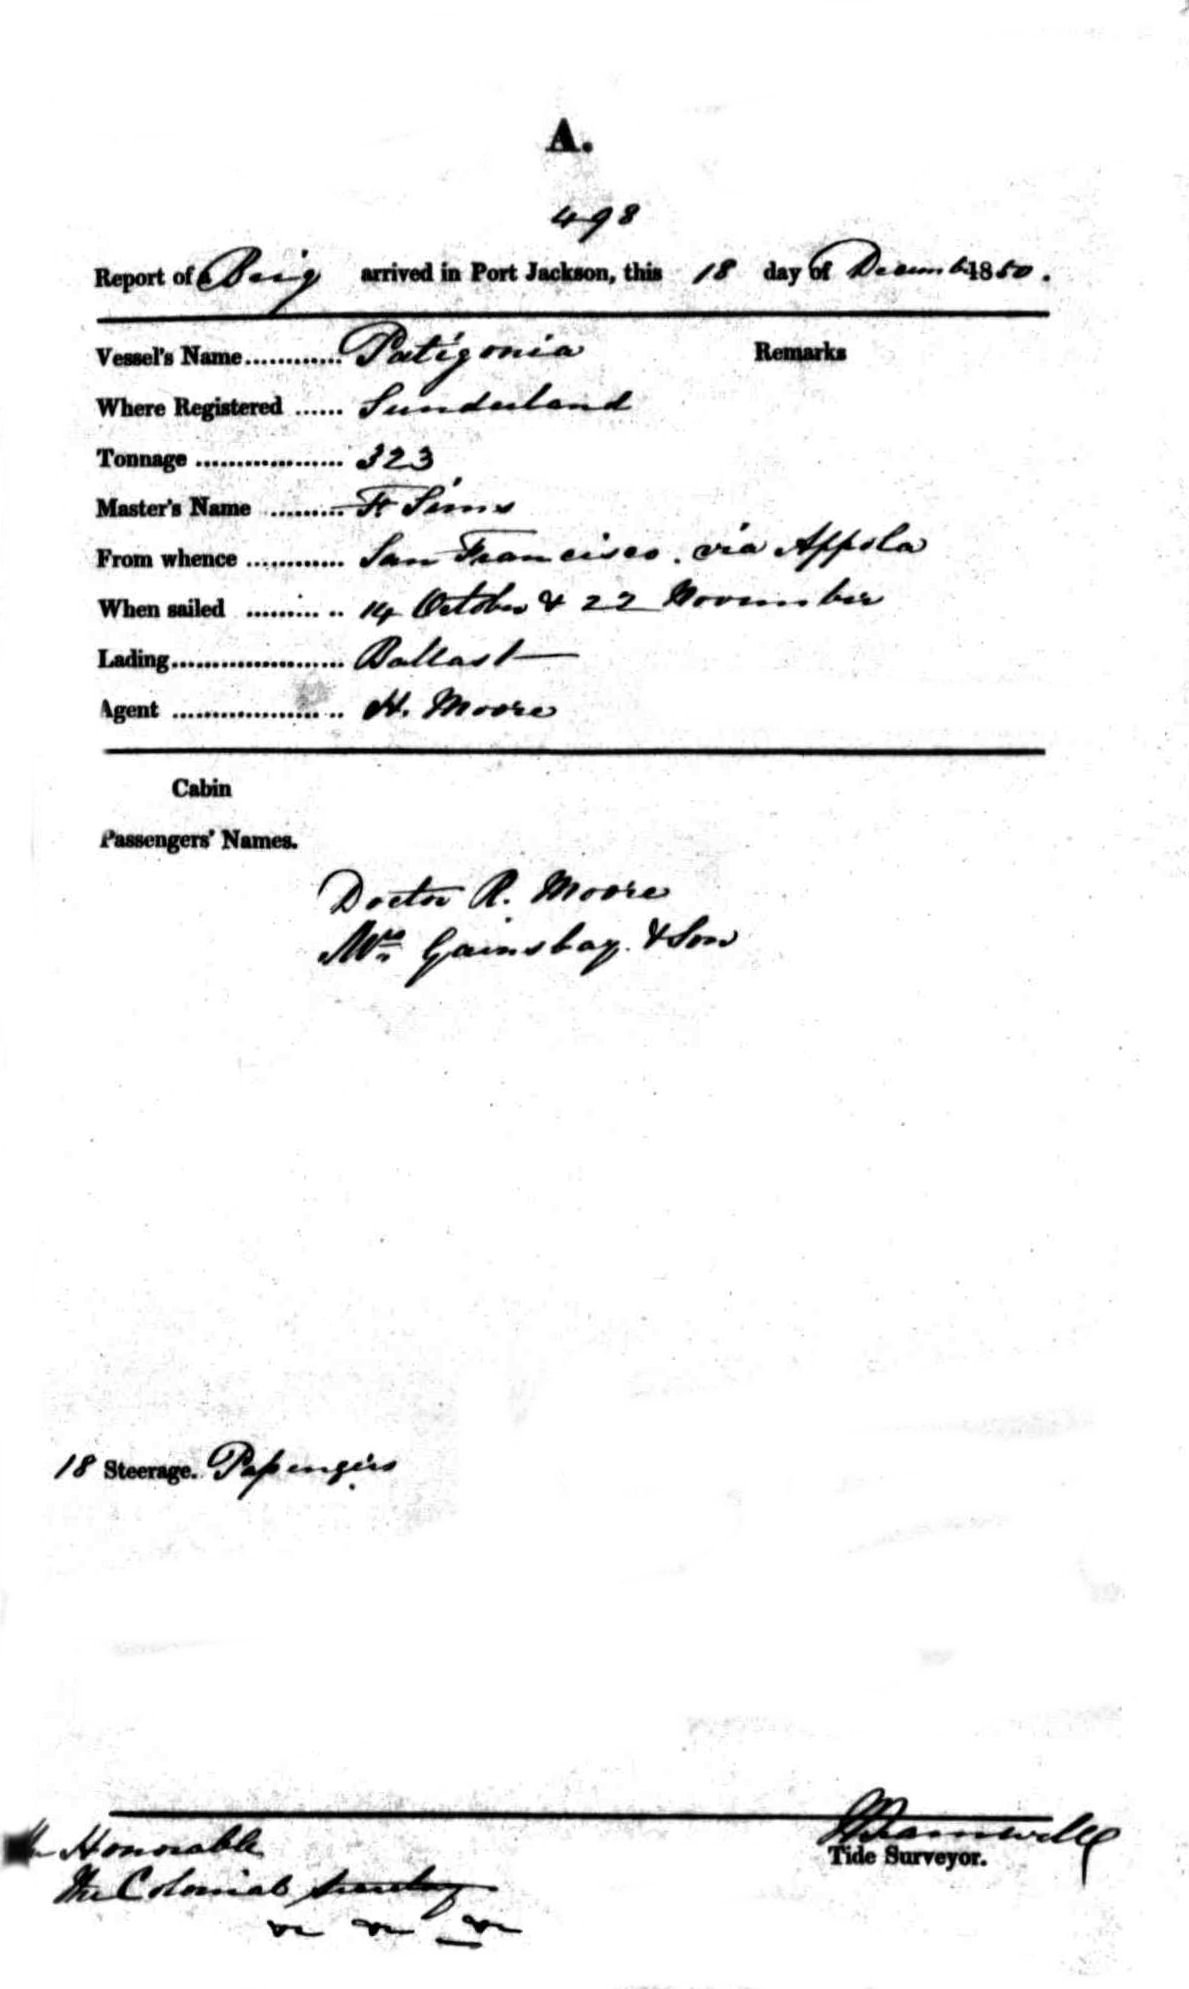 A.
498
Report of a Brig arrived in Port Jackson, this 18 day of December 1850.
Vessel's Name............ Patigonia
Remarks
Where Registered ...... Sunderland
Tonnage .................. 323
Master's Name ......... Sims
From whence ............ San Francisco. via Appola
When sailed ......... .. 14 October & 22 November
Lading..................... Ballast
Agent .................. .. H. Moore
Cabin
Passengers' Names.
Doctor R. Moore
Mrs Gainsbay & Son
18 Steerage. Passengers
Tide Surveyor.
Honorable
The Colonial Secretary